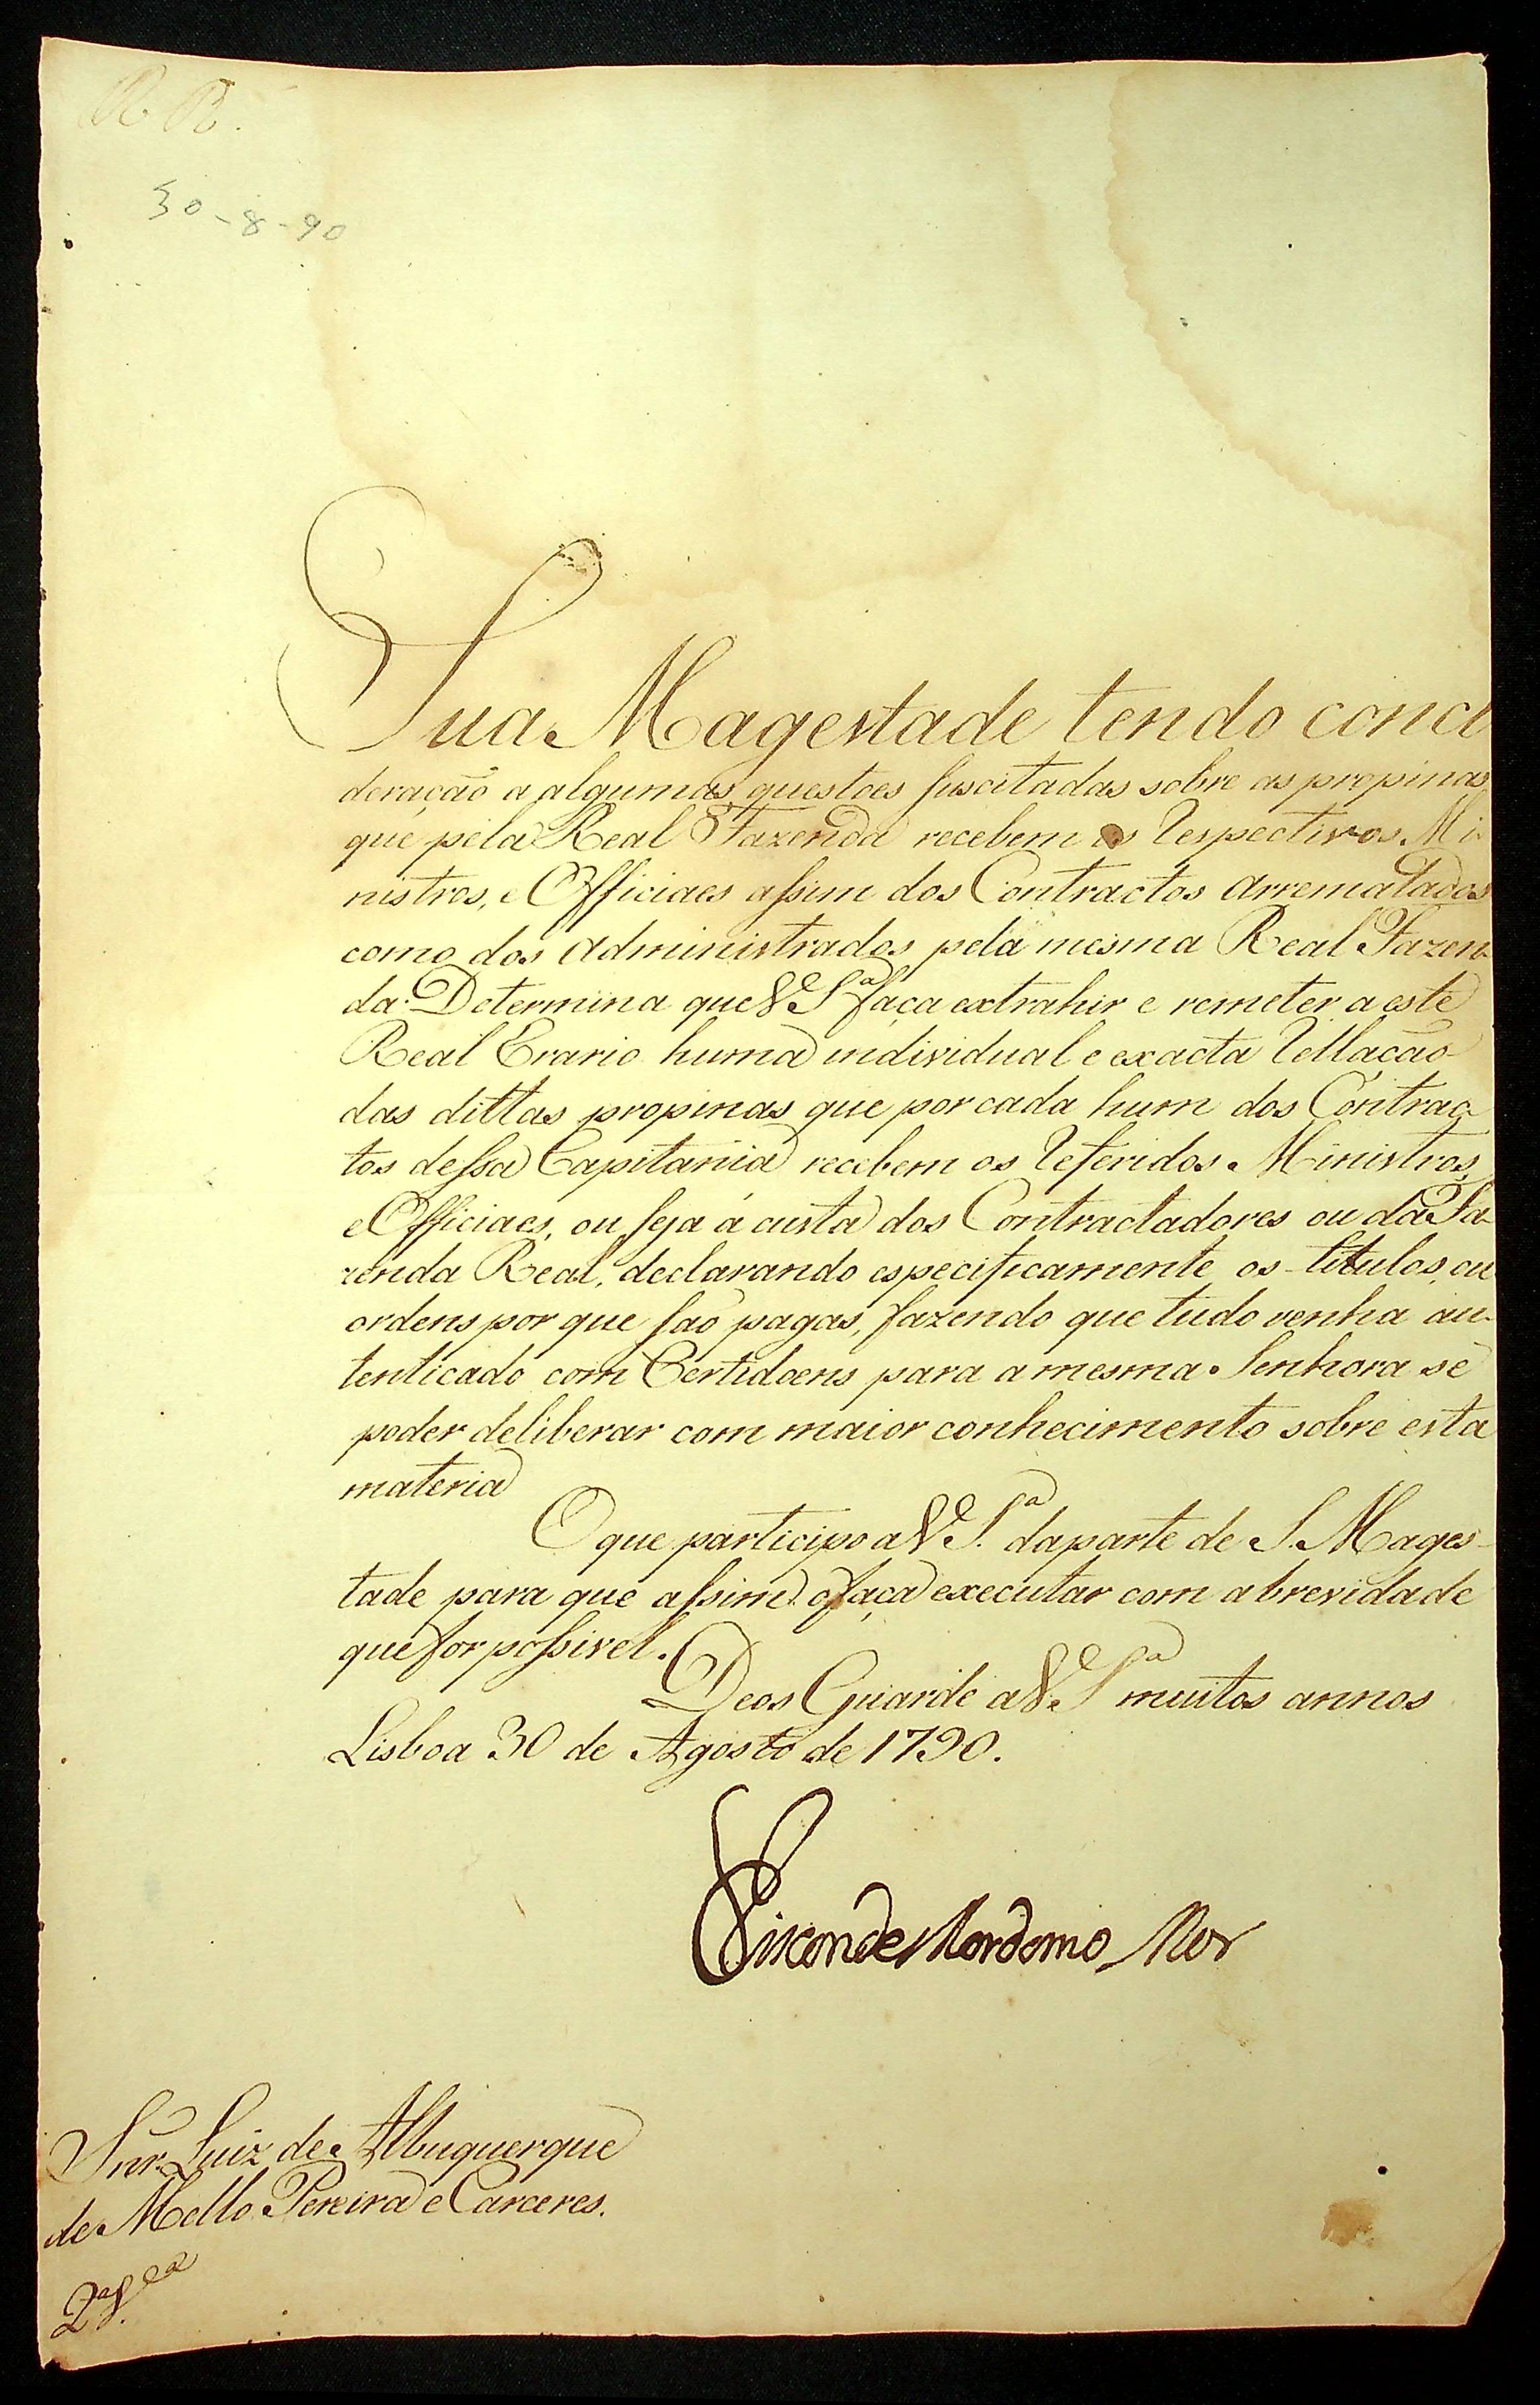 R. R.
30-8-90
Sua Magestade tendo conci
deração a algumas questoes suscitadas sobre as propinas,
que pela Real Fazenda recebem os respectivos Mi-
nistros, e Officiaes assim dos Contractos arrematados
como dos administrados pela mesma Real Fazen-
da: Determina que V. S.ª faça extrahir e remeter a este
Real Erario huma individual e exacta rellação
das dittas propinas que por cada hum dos Contrac-
tos dessa Capitania recebem os referidos Ministros,
e Officiaes, ou seja á custa dos Contractadores ou da Fa-
zenda Real, declarando especificamente os titulos, ou
ordens por que saõ pagas, fazendo que tudo venha au-
tenticado com Certidoens para a mesma Senhora se
poder deliberar com maior conhecimento sobre esta
materia
O que participo a V. S.ª da parte de S. Mages-
tade para que assim o faça executar com a brevidade
que for possivel.
Deos Guarde a V. S.ª muitos annos
Lisboa 30 de Agosto de 1790.
Visconde Mordomo Mor
Snr. Luiz de Albuquerque
de Mello Pereira e Carceres.
2.ª V.ª